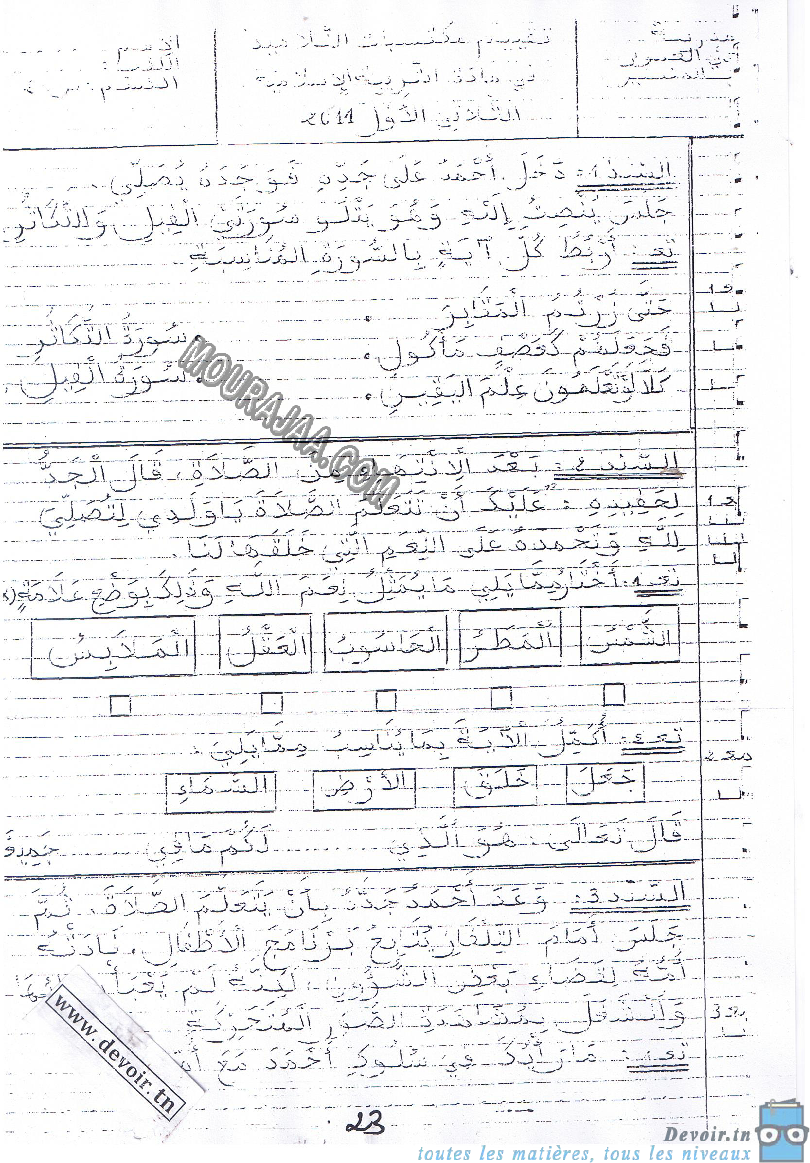 مدرسة
تقييم مكتسبات التلاميذ
الإسم
اللقب:
في مادة التربية الإسلامية
القسم: س
الثلاثي الأول 2011
السند 1: دَخَلَ أَحْمَدُ عَلَى جَدِّهِ فَوَجَدَهُ يُصَلِّي.
جَلَسَ يُنْصِتُ إِلَيْهِ وَهُوَ يَتْلُو سُورَتَيْ الْفِيلِ وَالتَّكَاثُرِ
تع: أَرْبِطُ كُلَّ آيَةٍ بِالسُّورَةِ الْمُنَاسِبَةِ.
حَتَّى زُرْتُمُ الْمَقَابِرَ .
فَجَعَلَهُمْ كَعَصْفٍ مَأْكُولٍ . . سُورَةُ التَّكَاثُرِ
كَلَّا لَوْ تَعْلَمُونَ عِلْمَ الْيَقِينِ . . سُورَةُ الْفِيلِ
MOURAJAA.COM
السند 2: بَعْدَ الْاِنْتِهَاءِ مِنَ الصَّلَاةِ، قَالَ الْجَدُّ
لِحَفِيدِهِ: "عَلَيْكَ أَنْ تَتَعَلَّمَ الصَّلَاةَ يَا وَلَدِي لِتُصَلِّيَ
لِلَّهِ وَتَحْمَدَهُ عَلَى النِّعَمِ الَّتِي خَلَقَهَا لَنَا.
تع 1: أَخْتَارُ مِمَّا يَلِي مَا يُمَثِّلُ نِعَمَ اللَّهِ وَذَلِكَ بِوَضْعِ عَلَامَةٍ (x
الشَّمْسُ الْمَطَرُ الْحَاسُوبُ الْعَقْلُ الْمَلَابِسُ
تع 2: أُكْمِلُ الْآيَةَ بِمَا يُنَاسِبُ مِمَّا يَلِي:
جَعَلَ خَلَقَ الْأَرْضِ السَّمَاءِ
قَالَ تَعَالَى: هُوَ الَّذِي ........ لَكُمْ مَا فِي ........ جَمِيعًا
السند 3: وَعَدَ أَحْمَدُ جَدَّهُ بِأَنْ يَتَعَلَّمَ الصَّلَاةَ، ثُمَّ
جَلَسَ أَمَامَ التِّلْفَازِ يُتَابِعُ بَرْنَامَجَ الْأَطْفَالِ، نَادَتْهُ
أُمُّهُ لِقَضَاءِ بَعْضِ الشُّؤُونِ، لَكِنَّهُ لَمْ يَعْبَأْ
وَانْشَغَلَ بِمُشَاهَدَةِ الصُّوَرِ الْمُتَحَرِّكَةِ
تع 1: مَا رَأْيُكَ فِي سُلُوكِ أَحْمَدَ مَعَ
www.devoir.tn
23
Devoir.tn
toutes les matières, tous les niveaux